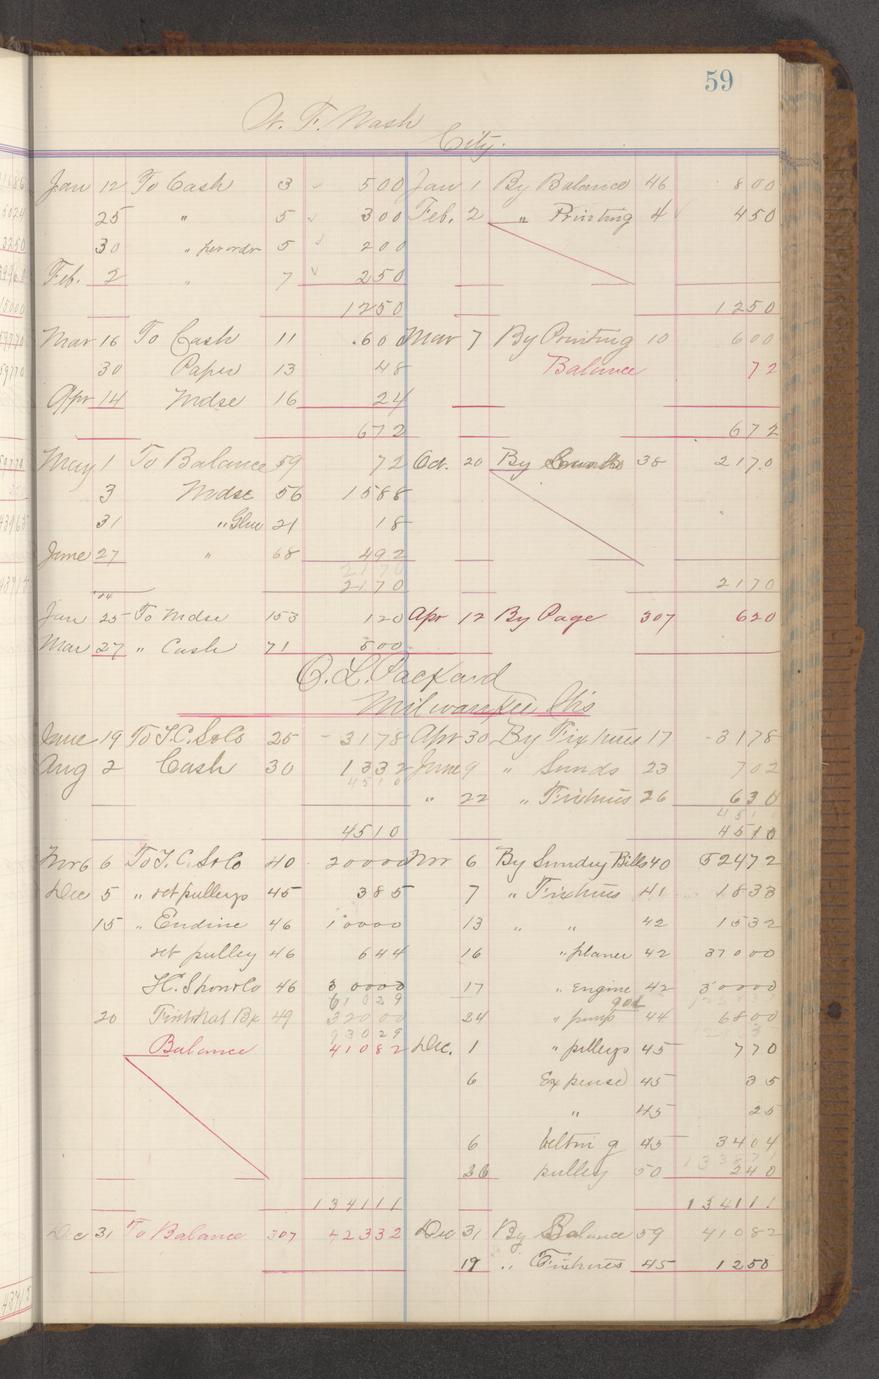 59
W. F. Nash
City.
Jan 12 To Cash 3 500 Jan 1 By Balance 46 800
25 " 5 300 Feb. 2 " Printing 4 450
30 " per order 5 200
Feb. 2 " 7 250
1250 1250
Mar 16 To Cash 11 .600 Mar 7 By Printing 10 600
30 Paper 13 48 Balance 72
Apr 14 Mdse 16 24
672 672
May 1 To Balance 59 72 Oct. 20 By 38 2170
3 Mdse 56 1588
31 " Glue 21 18
June 27 " 68 492
2170
2170 2170
Jan 25 To Mdse 153 120 Apr 12 By Page 307 620
Mar 27 " Cash 71 500
C. L. Packard
Milwaukee, Wis
June 19 To T. C. 25 3178 Apr 30 By Fixtures 17 3178
Aug 2 Cash 30 1332 June 9 " Sunds 23 702
4510
" 22 " Fixtures 26 630
4510 4510
Nov 6 To T. C. 40 20000 Nov 6 By Sundry Bills 40 52472
Dec 5 " set pulleys 45 385 7 " Fixtures 41 1833
15 " Engine 46 10000 13 " " 42 1532
set pulley 46 644 16 " planer 42 37000
46 30000 17 " engine 42 30000
61029 god
20 49 32000 24 " pump 44 6800
93029
Balance 41082 Dec. 1 " pulleys 45 770
6 Expense 45 35
" 45 25
6 belting 45 3404
26 pulley 50 240
134111 134111
Dec 31 To Balance 307 42332 Dec 31 By Balance 59 41082
19 " Fixtures 45 1250